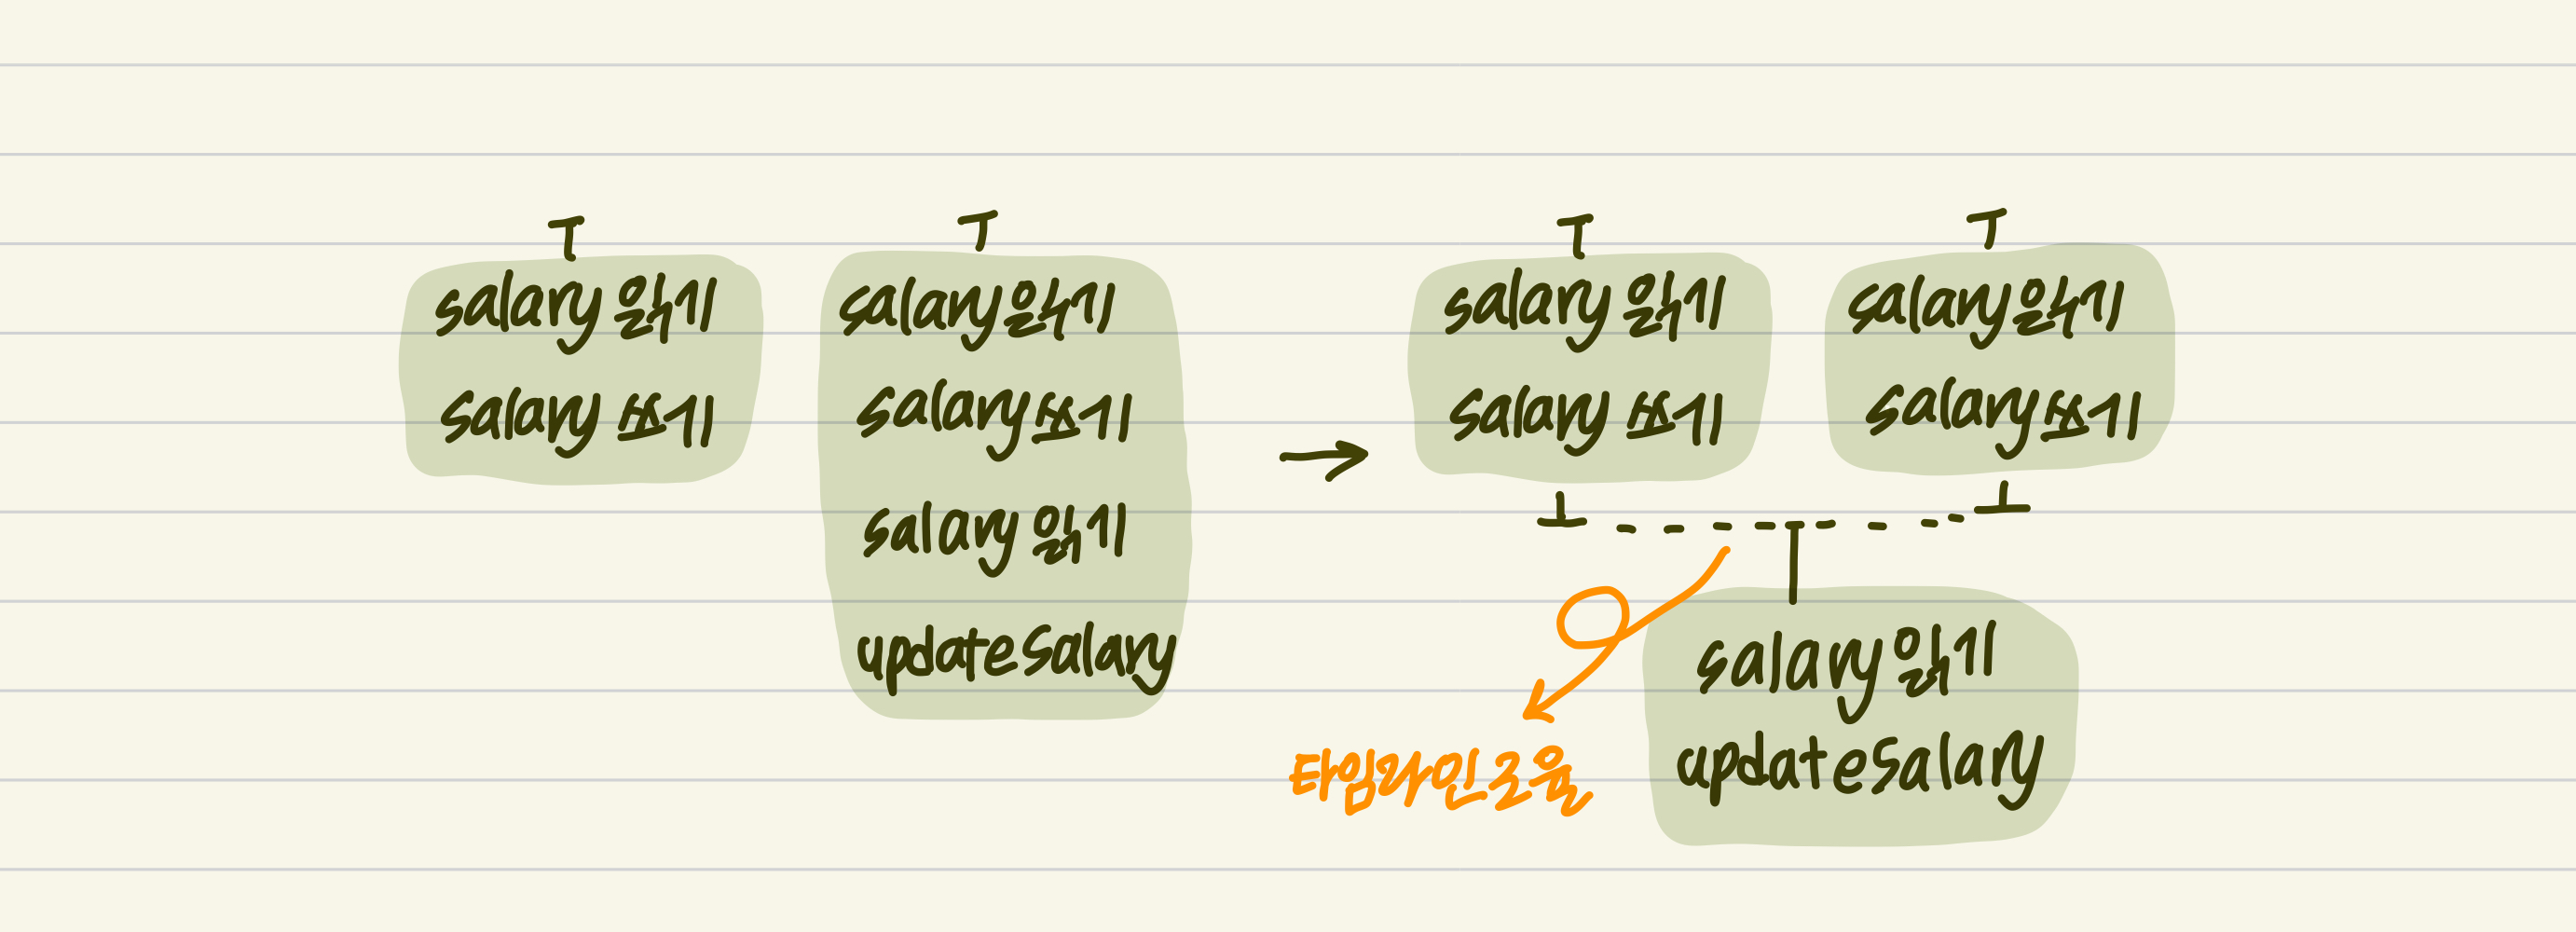 salary 읽기
salary 쓰기
salary 읽기
salary 쓰기
salary 읽기
updateSalary
salary 읽기
salary 쓰기
salary 읽기
salary 쓰기
salary 읽기
updateSalary
타임라인 조율